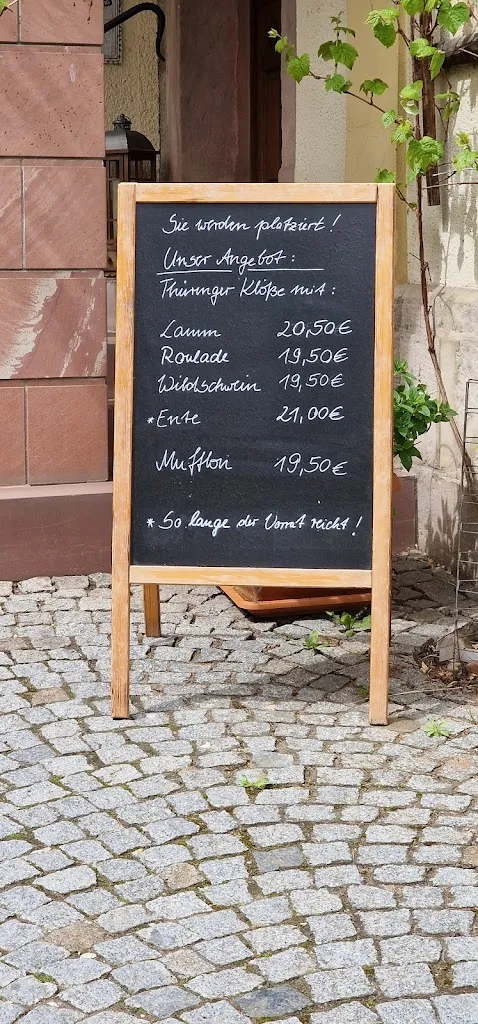 Sie werden platziert!
Unser Angebot:
Thüringer Klöße mit:
Lamm 20,50€
Roulade 19,50€
Wildschwein 19,50€
*Ente 21,00€
Mufflon 19,50€
* So lange der Vorrat reicht!